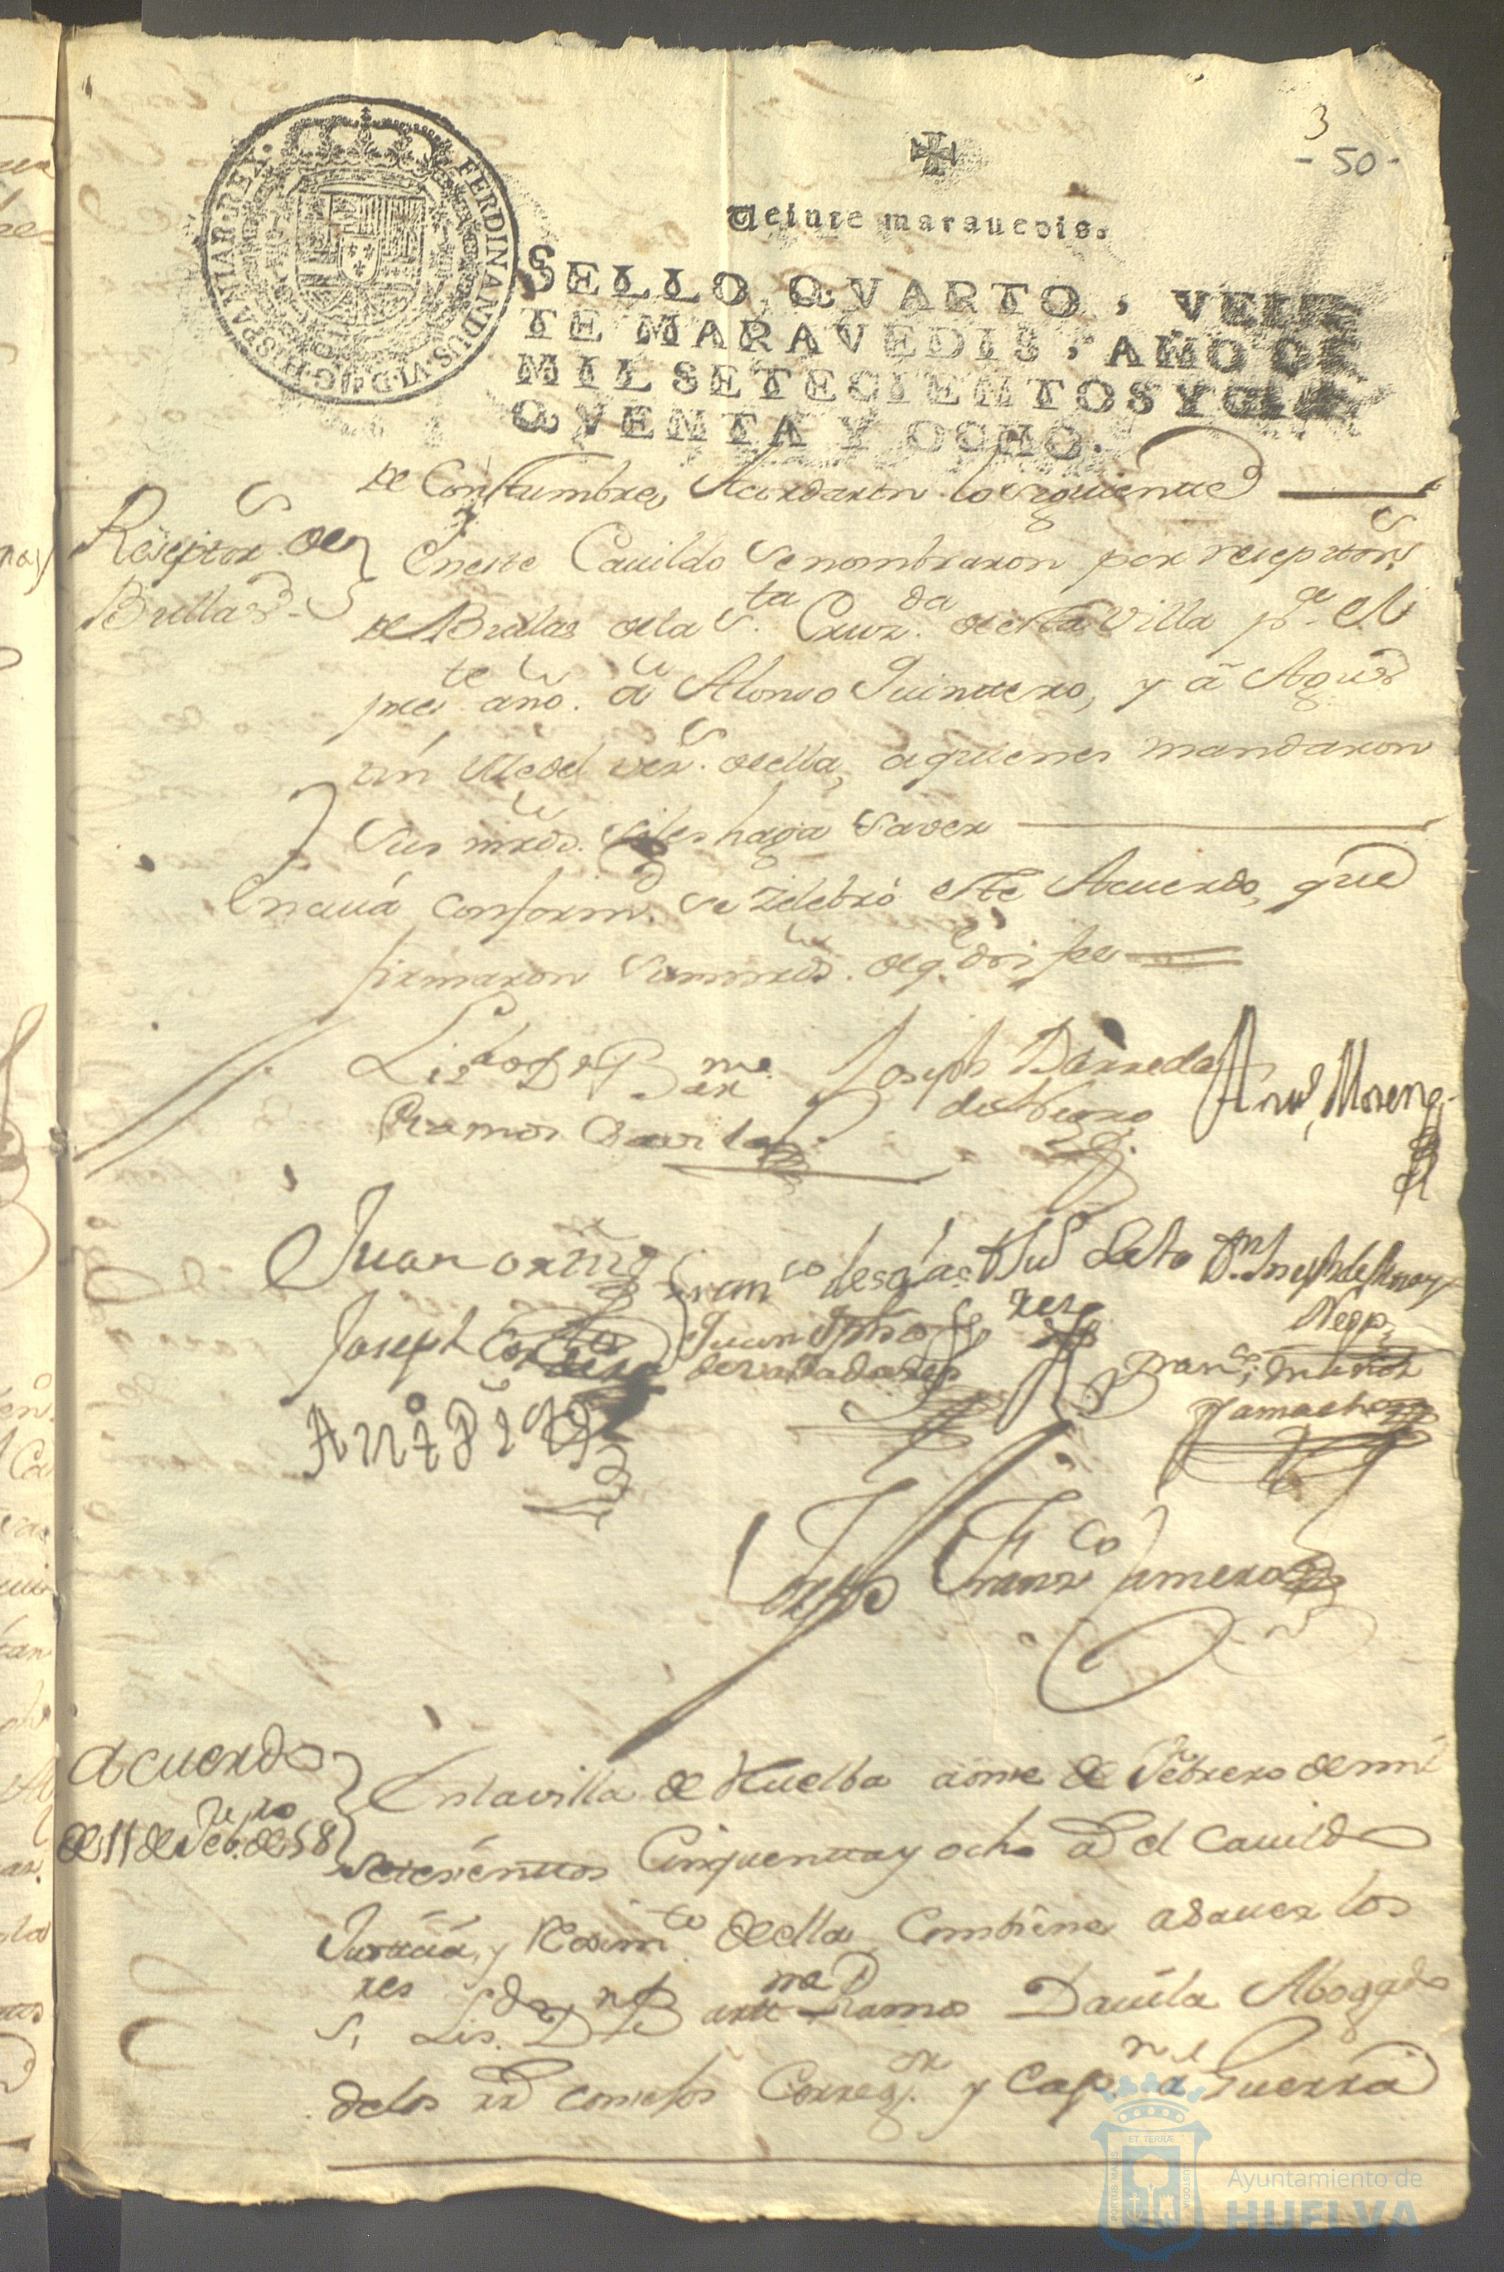 3
- 50 -
FERDINANDUS. VI. D. G. HISPANIAR. REX.
Veinte marauedis.
SELLO QVARTO, VEIN
TE MARAVEDIS, AÑO DE
MIL SETECIENTOS Y CIN
QVENTA Y OCHO.
de Constumbre, Acordaron lo siguiente
Reseptor de
Bullas
Eneste Cauildo Senombraron por reseptors
de Bullas dela Sta. Cruzda. de esta Villa pa. el
preste. año. a Alonso Quintero, y â Agus
tin Vedel vez. de ella, aquienes mandaron
Sus mrds. seles haga Saver
Encuiá conformd. se zelebró este Acuerdo, que
firmaron Susmrds. deq. doi fee
Lizdo. Dn. Barme.
Ramos Davila
Joseph Barreda
Anto, Moreno
Juan
Franco de
Dn. Joseph
Joseph
Juan
de valladares
Franco. muñoz
Camacho
Joseph Franzco Romero
Acuerdo
de 11 de Febro. de 58
Enlavilla de Huelba aonse de Febrero de mil
setesientos Cinquenta y ocho el Cauildo
Justicia, y Reximto. de ella Combiene asauer los
Sres. Lisdo. Dn. Bartme. Ramos Dauila Abogado
delos rs. consejos Corregor. y Capn. a Guerra
PORTUS MARIS
ET TERRÆ
CUSTODIA
Ayuntamiento de
HUELVA